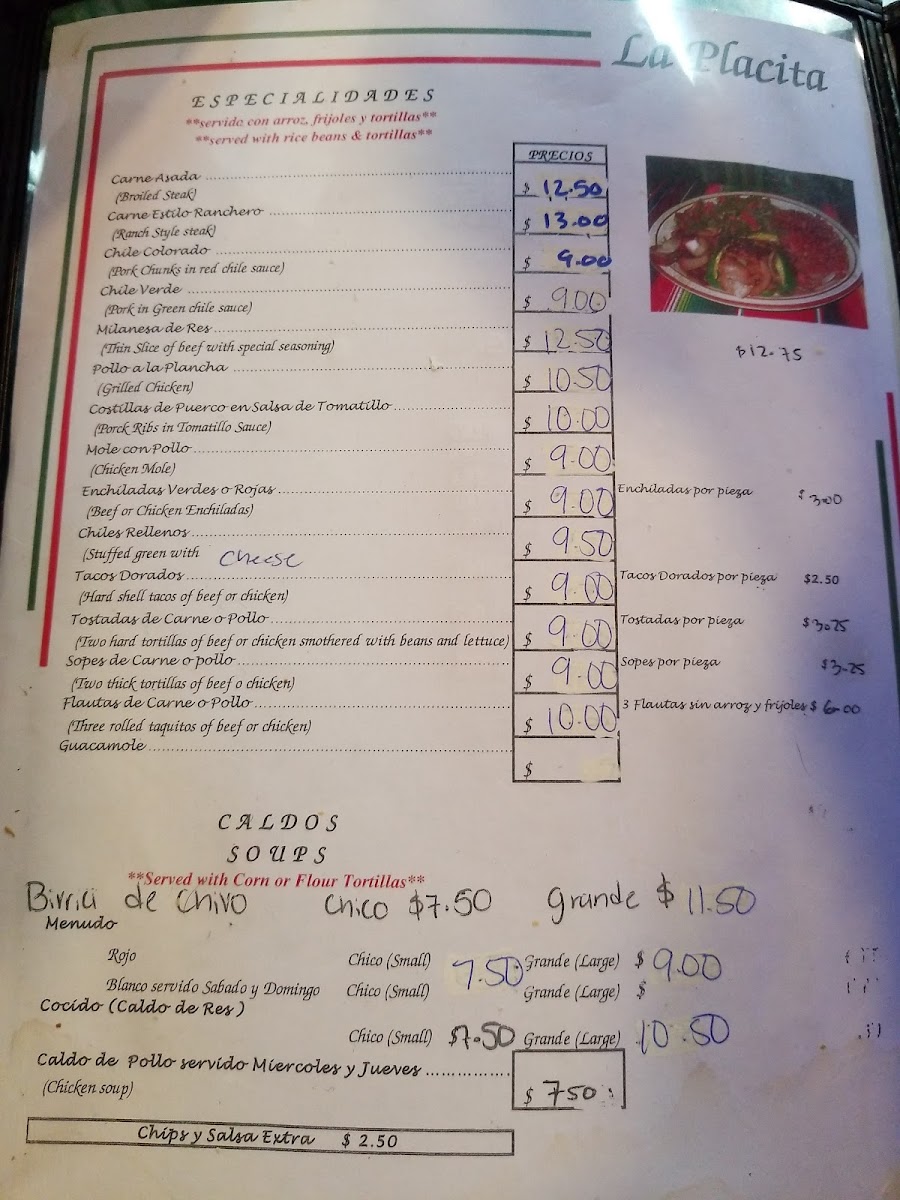 La Placita
ESPECIALIDADES
**servido con arroz, frijoles y tortillas**
**served with rice beans & tortillas**
PRECIOS
Carne Asada $ 12.50
(Broiled Steak)
Carne Estilo Ranchero $ 13.00
(Ranch Style steak)
Chile Colorado $ 9.00
(Pork Chunks in red chile sauce)
Chile Verde $ 9.00
(Pork in Green chile sauce)
Milanesa de Res $ 12.50
(Thin Slice of beef with special seasoning)
$12.75
Pollo a la Plancha $ 10.50
(Grilled Chicken)
Costillas de Puerco en Salsa de Tomatillo $ 10.00
(Porck Ribs in Tomatillo Sauce)
Mole con Pollo $ 9.00
(Chicken Mole)
Enchiladas Verdes o Rojas $ 9.00 Enchiladas por pieza $ 3.00
(Beef or Chicken Enchiladas)
Chiles Rellenos $ 9.50
(Stuffed green with cheese
Tacos Dorados $ 9.00 Tacos Dorados por pieza $2.50
(Hard shell tacos of beef or chicken)
Tostadas de Carne o Pollo $ 9.00 Tostadas por pieza $3.25
(Two hard tortillas of beef or chicken smothered with beans and lettuce)
Sopes de Carne o pollo $ 9.00 Sopes por pieza $3.25
(Two thick tortillas of beef o chicken)
Flautas de Carne o Pollo $ 10.00 3 Flautas sin arroz y frijoles $ 6.00
(Three rolled taquitos of beef or chicken)
Guacamole $
CALDOS
SOUPS
**Served with Corn or Flour Tortillas**
Birria de Chivo Chico $7.50 grande $ 11.50
Menudo
Rojo Chico (Small) 7.50 Grande (Large) $ 9.00
Blanco servido Sabado y Domingo Chico (Small) Grande (Large) $
Cocido (Caldo de Res)
Chico (Small) $7.50 Grande (Large) 10.50
Caldo de Pollo servido Miercoles y Jueves $ 7.50
(Chicken soup)
Chips y Salsa Extra $ 2.50